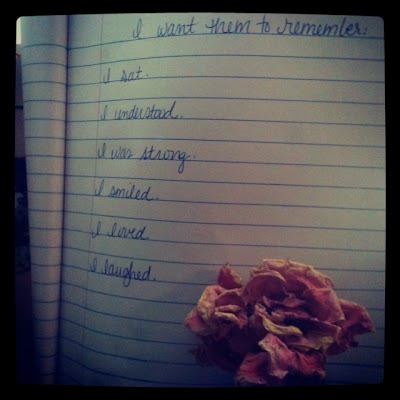 I want them to remember:
I sat.
I understood.
I was strong.
I smiled.
I loved
I laughed.